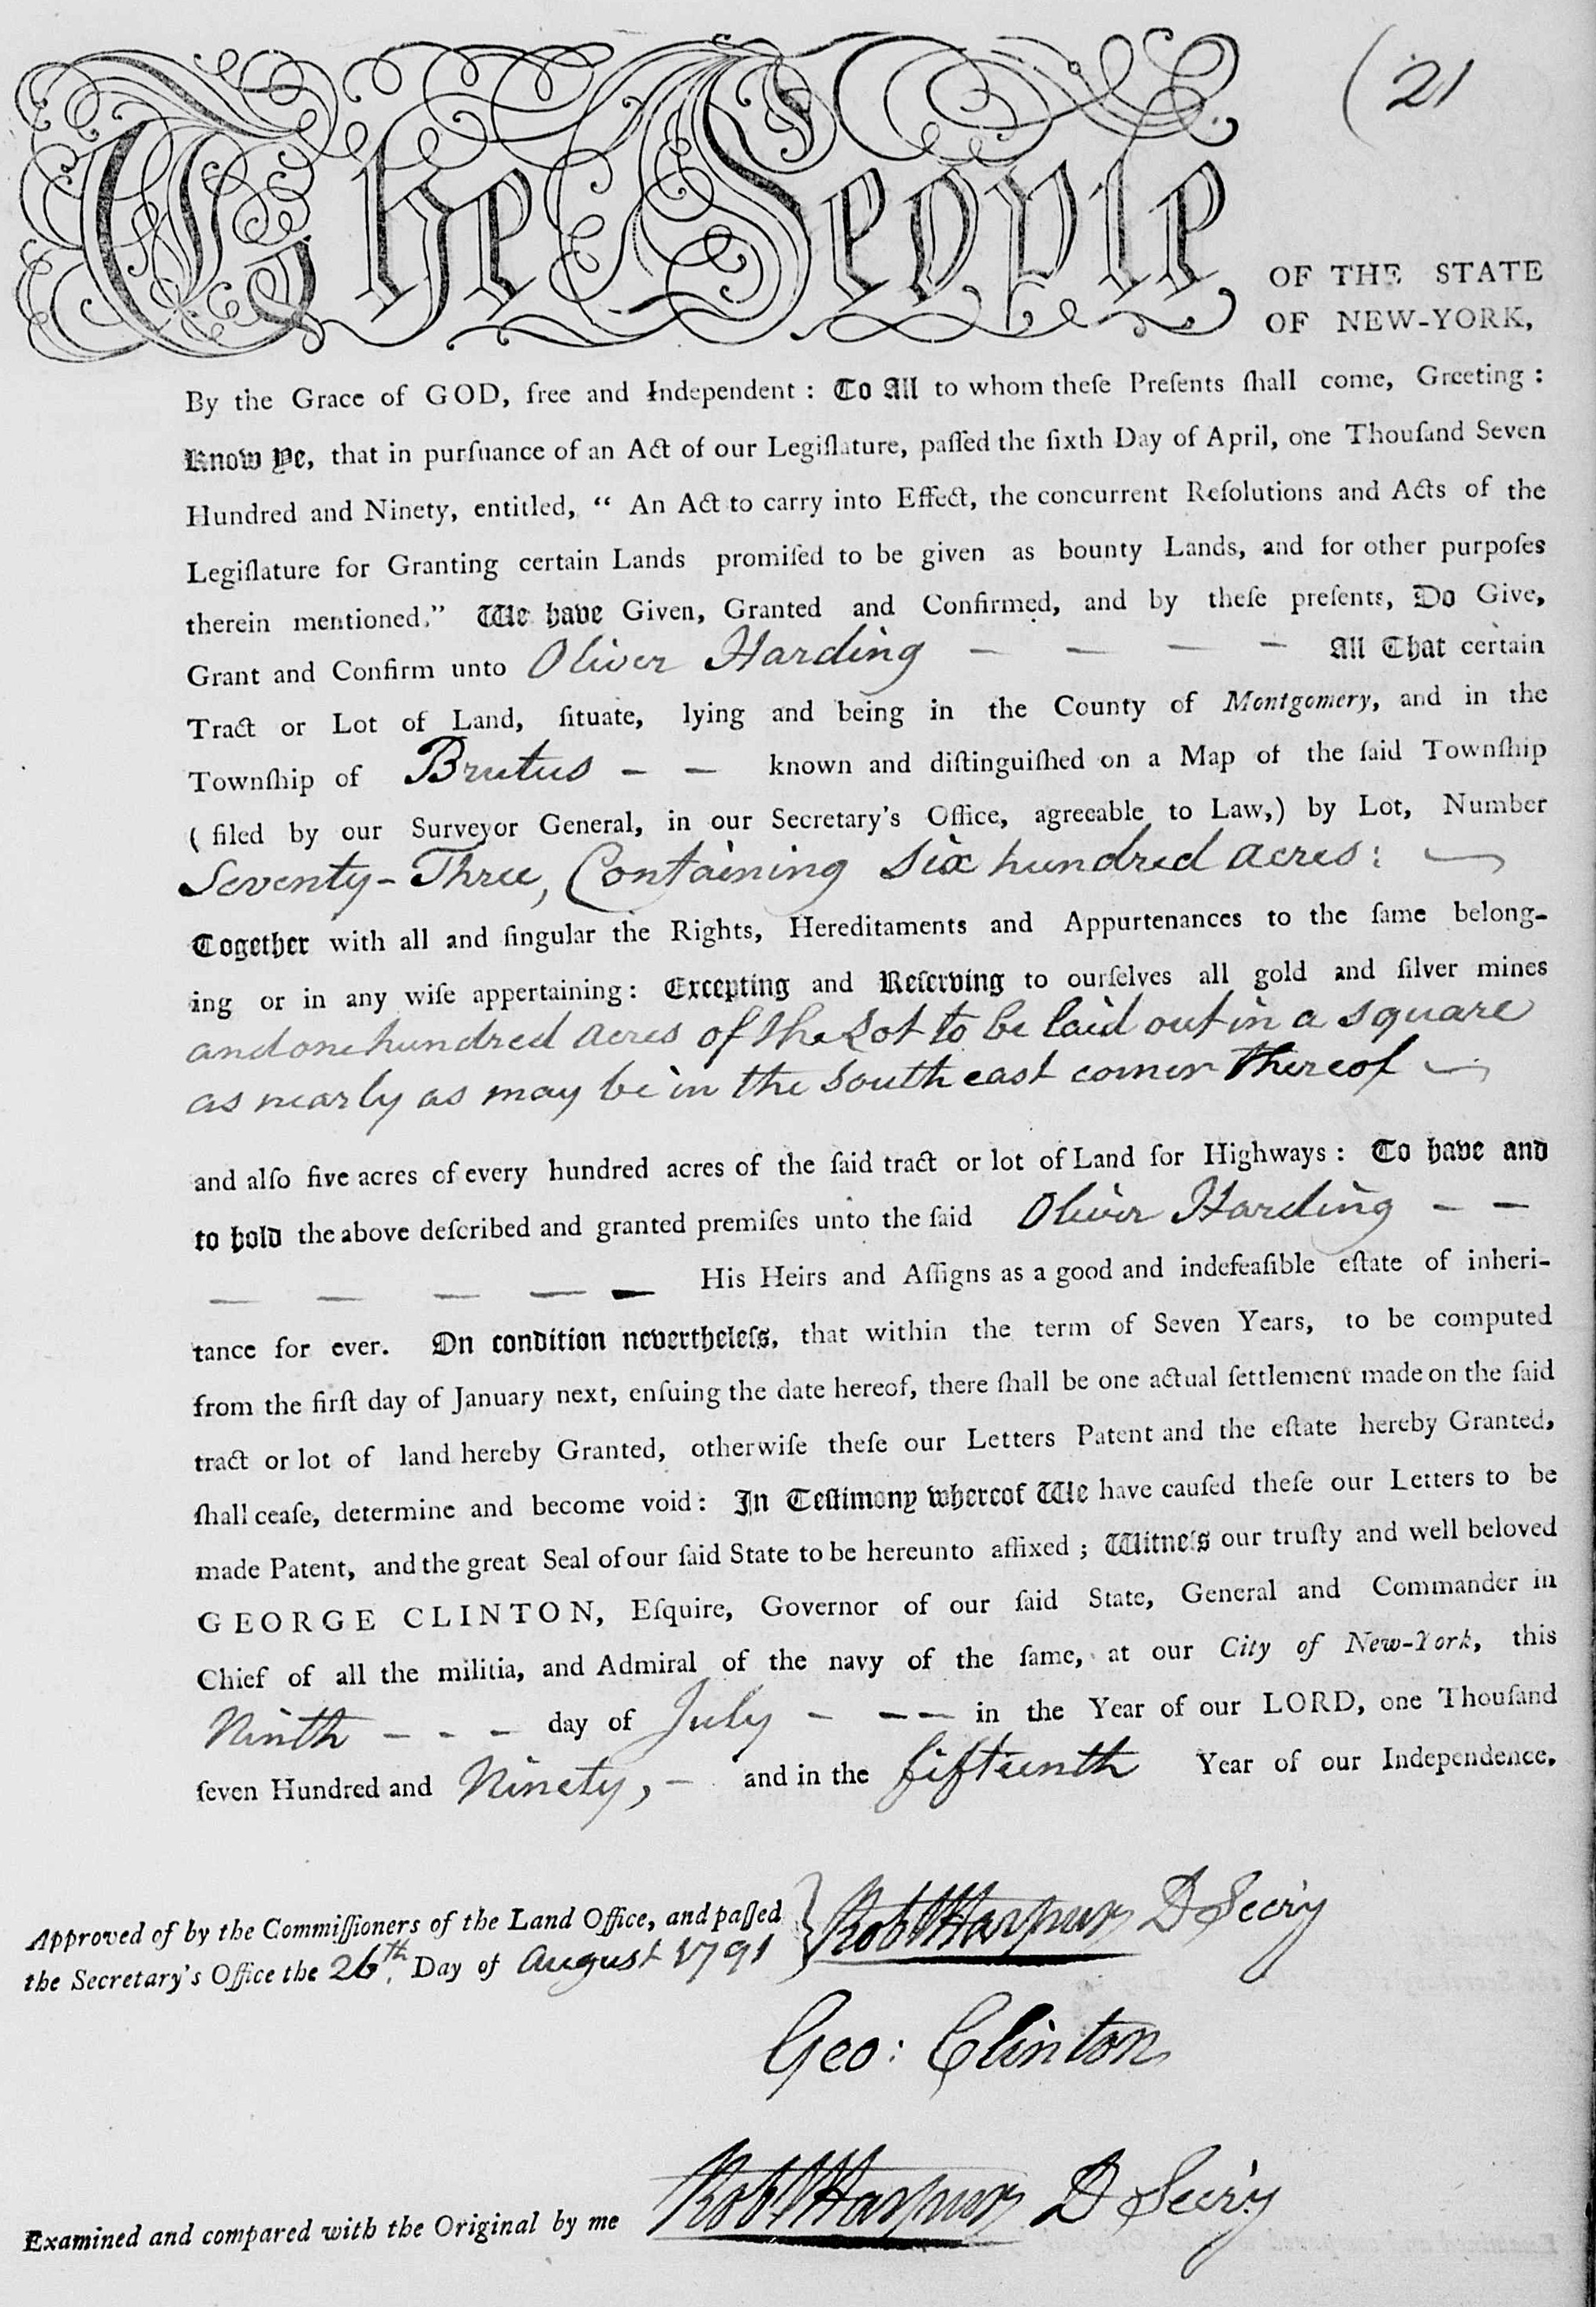 (21
The People OF THE STATE
OF NEW-YORK,
By the Grace of GOD, free and Independent : To All to whom theſe Preſents ſhall come, Greeting :
Know Ye, that in purſuance of an Act of our Legiſlature, paſſed the ſixth Day of April, one Thouſand Seven
Hundred and Ninety, entitled, “ An Act to carry into Effect, the concurrent Reſolutions and Acts of the
Legiſlature for Granting certain Lands promiſed to be given as bounty Lands, and for other purpoſes
therein mentioned.” We have Given, Granted and Confirmed, and by theſe preſents, Do Give,
Grant and Confirm unto Oliver Harding — — — — All That certain
Tract or Lot of Land, ſituate, lying and being in the County of Montgomery, and in the
Townſhip of Brutus — — known and diſtinguiſhed on a Map of the ſaid Townſhip
( filed by our Surveyor General, in our Secretary's Office, agreeable to Law,) by Lot, Number
Seventy-Three, Containing six hundred acres: —
Together with all and ſingular the Rights, Hereditaments and Appurtenances to the ſame belong-
ing or in any wiſe appertaining : Excepting and Reſerving to ourſelves all gold and ſilver mines
and one hundred acres of the Lot to be laid out in a square
as nearly as may be in the South east corner thereof —
and alſo five acres of every hundred acres of the ſaid tract or lot of Land for Highways : To have and
to hold the above deſcribed and granted premiſes unto the ſaid Oliver Harding — —
— — — — — His Heirs and Aſſigns as a good and indefeaſible eſtate of inheri-
tance for ever. On condition nevertheleſs, that within the term of Seven Years, to be computed
from the firſt day of January next, enſuing the date hereof, there ſhall be one actual ſettlement made on the ſaid
tract or lot of land hereby Granted, otherwiſe theſe our Letters Patent and the eſtate hereby Granted,
ſhall ceaſe, determine and become void : In Teſtimony whereof We have cauſed theſe our Letters to be
made Patent, and the great Seal of our ſaid State to be hereunto affixed ; Witneſs our truſty and well beloved
GEORGE CLINTON, Eſquire, Governor of our ſaid State, General and Commander in
Chief of all the militia, and Admiral of the navy of the ſame, at our City of New-York, this
Ninth — — — day of July — — — in the Year of our LORD, one Thouſand
ſeven Hundred and Ninety, — and in the fifteenth Year of our Independence.
Approved of by the Commiſſioners of the Land Office, and paſſed } Robt Harpur D Secry
the Secretary's Office the 26th. Day of August 1791
Geo: Clinton
Examined and compared with the Original by me Robt Harpur D Secry